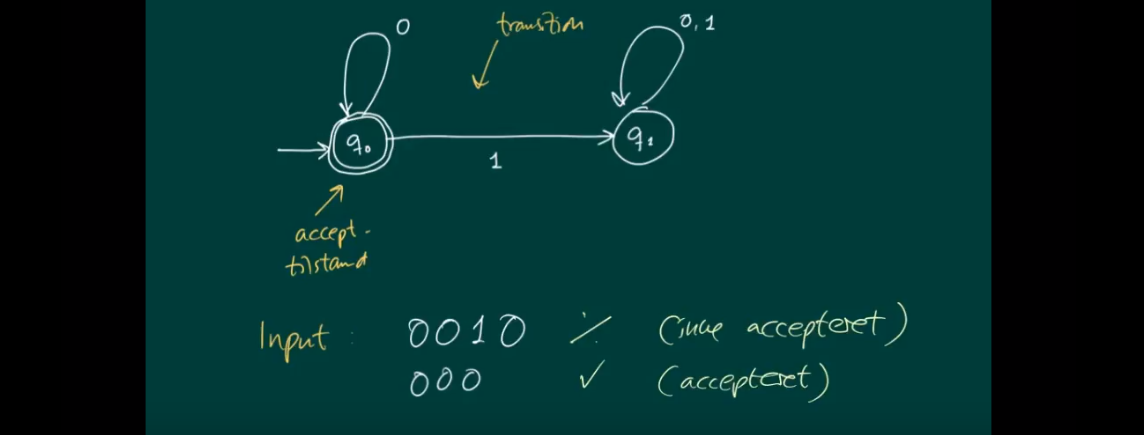 0
transition
0,1
q₀
q₁
1
accept-
tilstand
Input: 0010 ٪ (ikke accepteret)
000 ✓ (accepteret)